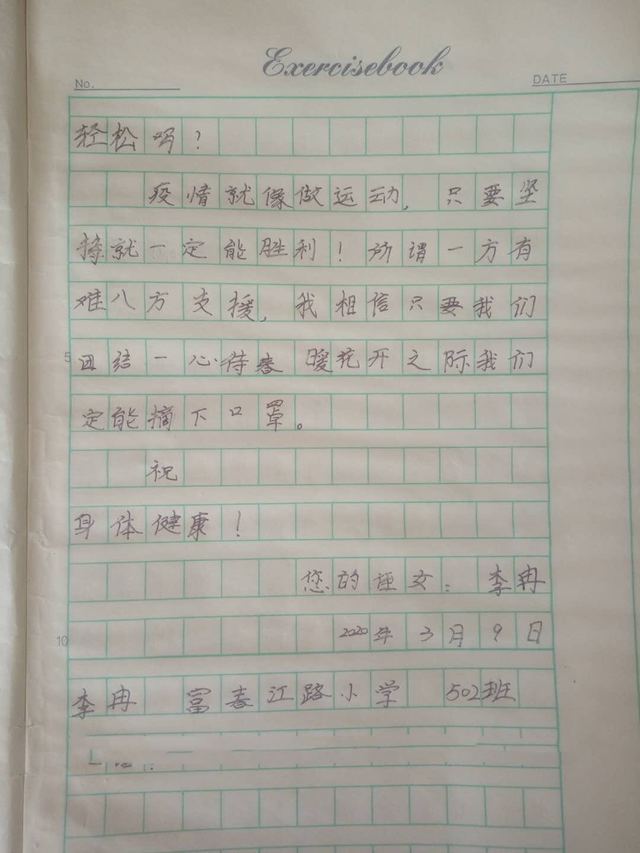 Exercisebook
No.
DATE
轻松吗?
疫情就像做运动,只要坚
持就一定能胜利!所谓一方有
难八方支援,我相信只要我们
5
团结一心待春暖花开之际我们
定能摘下口罩。
祝
身体健康!
您的侄女:李冉
10
2020年3月9日
李冉 富春江路小学 502班